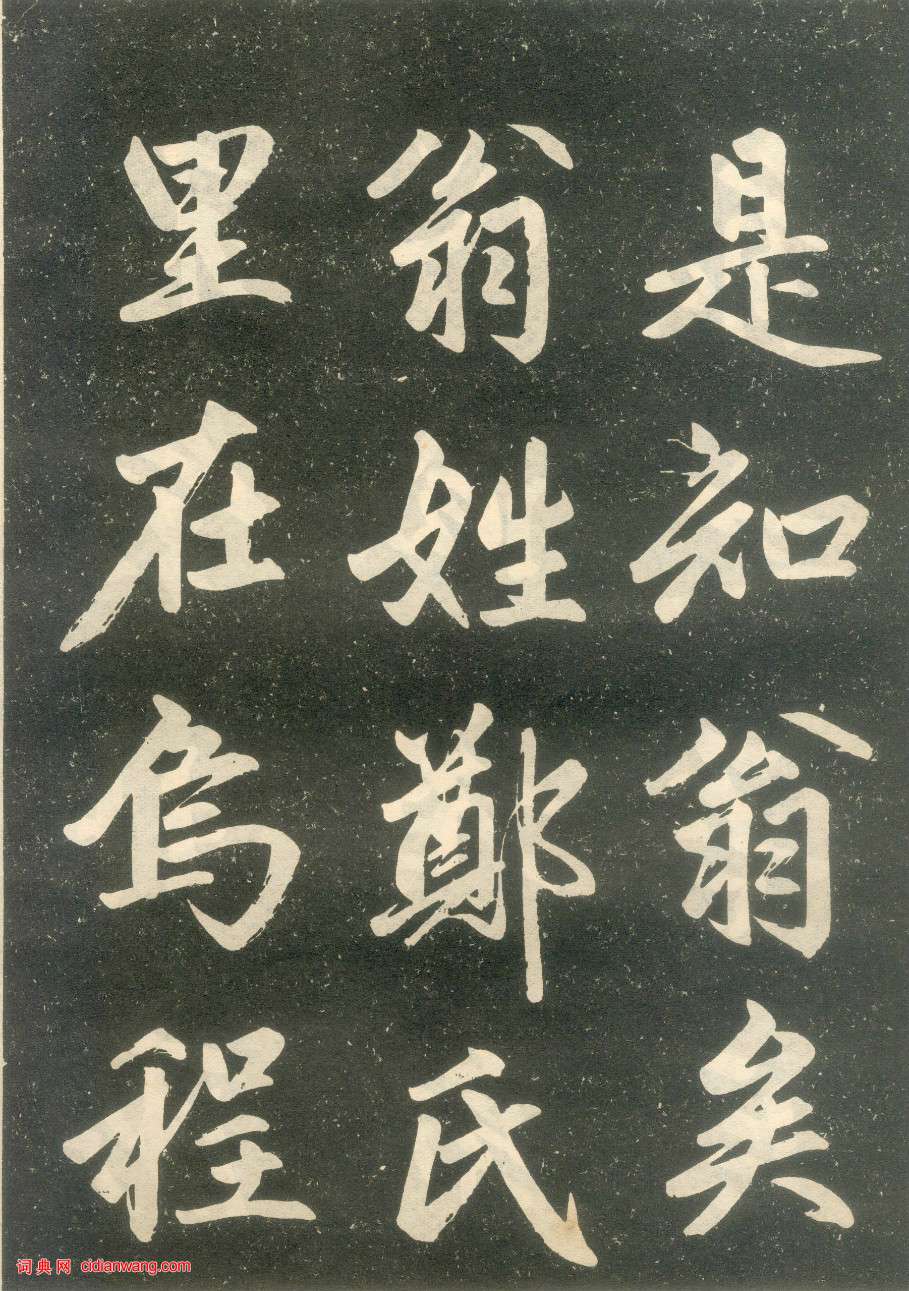 是知翁矣
翁姓鄭氏
里在烏程
词典网 cidianwang.com